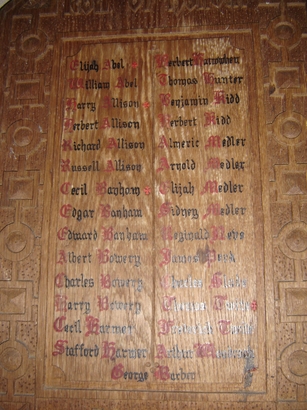 Elijah Abel
William Abel
Harry Allison
Herbert Allison
Richard Allison
Russell Allison
Cecil Banham
Edgar Banham
Edward Banham
Albert Bowery
Charles Bowery
Harry Bowery
Cecil Harmer
Stafford Harmer
Herbert
Thomas Hunter
Benjamin Kidd
Herbert Kidd
Almeric Medler
Arnold Medler
Elijah Medler
Sidney Medler
Reginald Neve
James
Charles
Arthur
George Barber